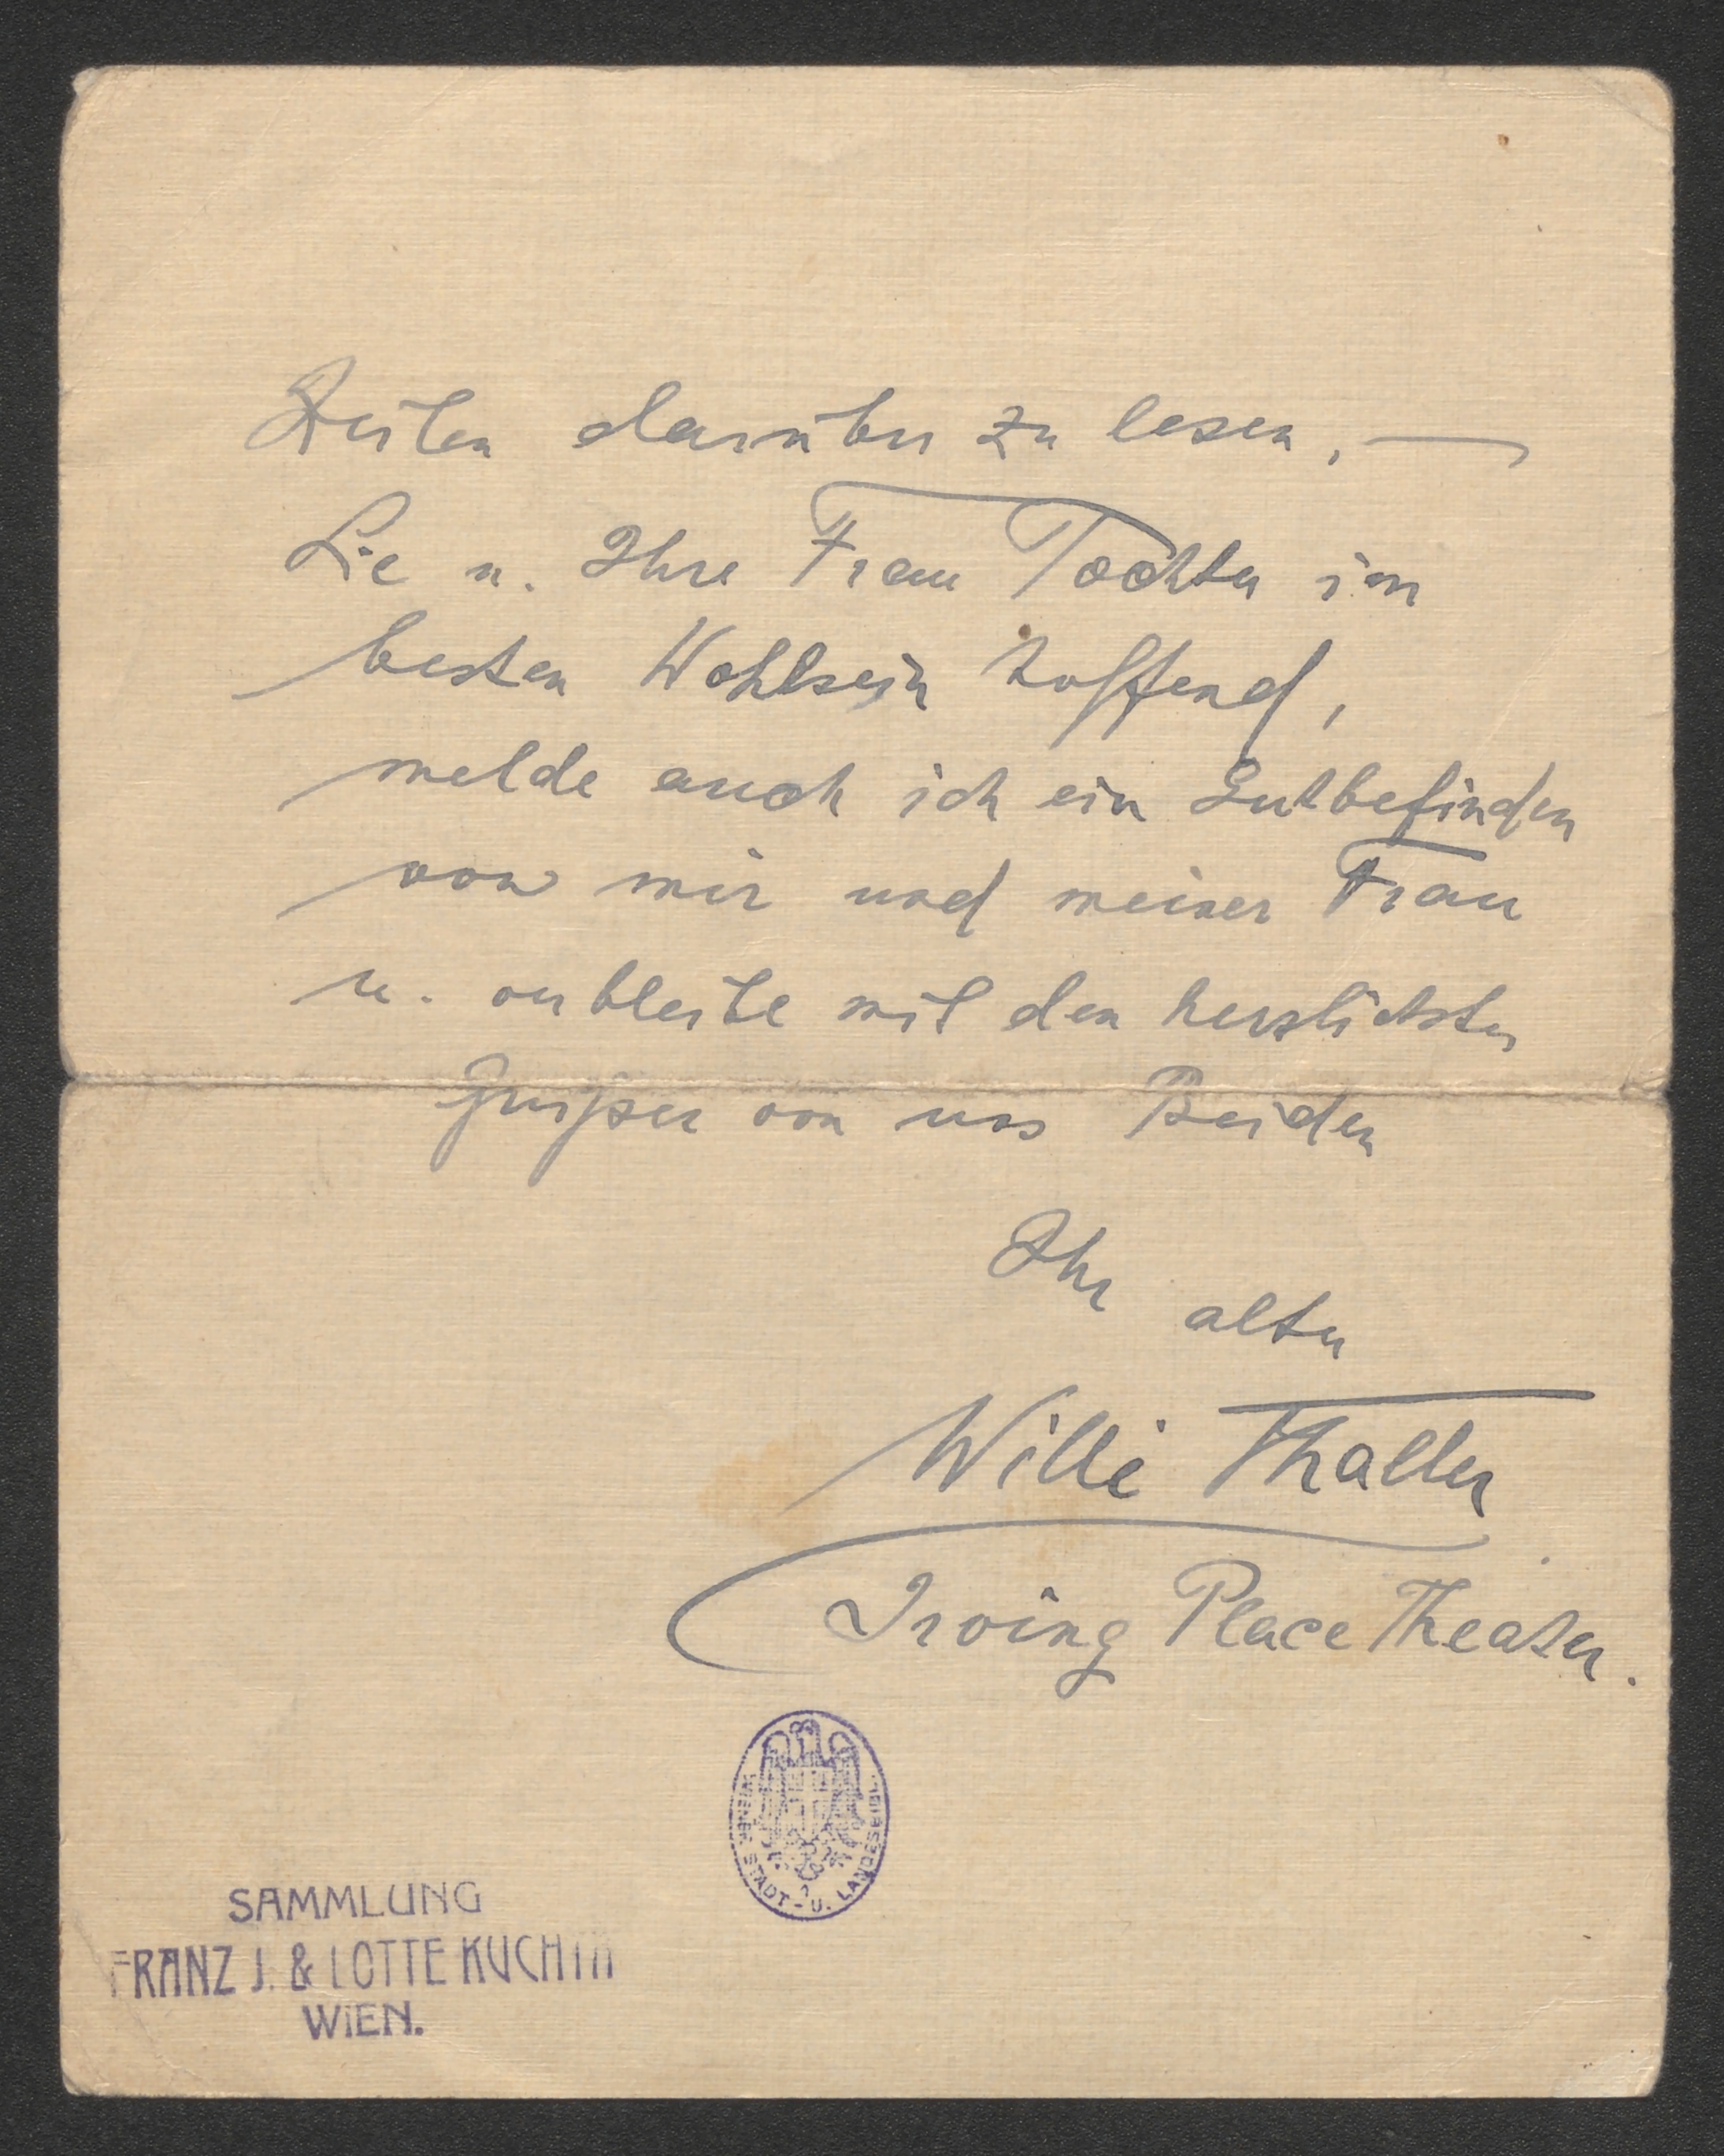 Zeilen darüber zu lesen. —
Sie u. Ihre Frau Tochter im
besten Wohlsein hoffend,
melde auch ich ein Gutbefinden
von mir und meiner Frau
u. verbleibe mit den herzlichsten
Grüßen von uns Beiden
Ihr alter
Willi Thaller
Irving Place Theater.
WIENER STADT - U. LANDESBIBL.
SAMMLUNG
FRANZ J. & LOTTE
WIEN.